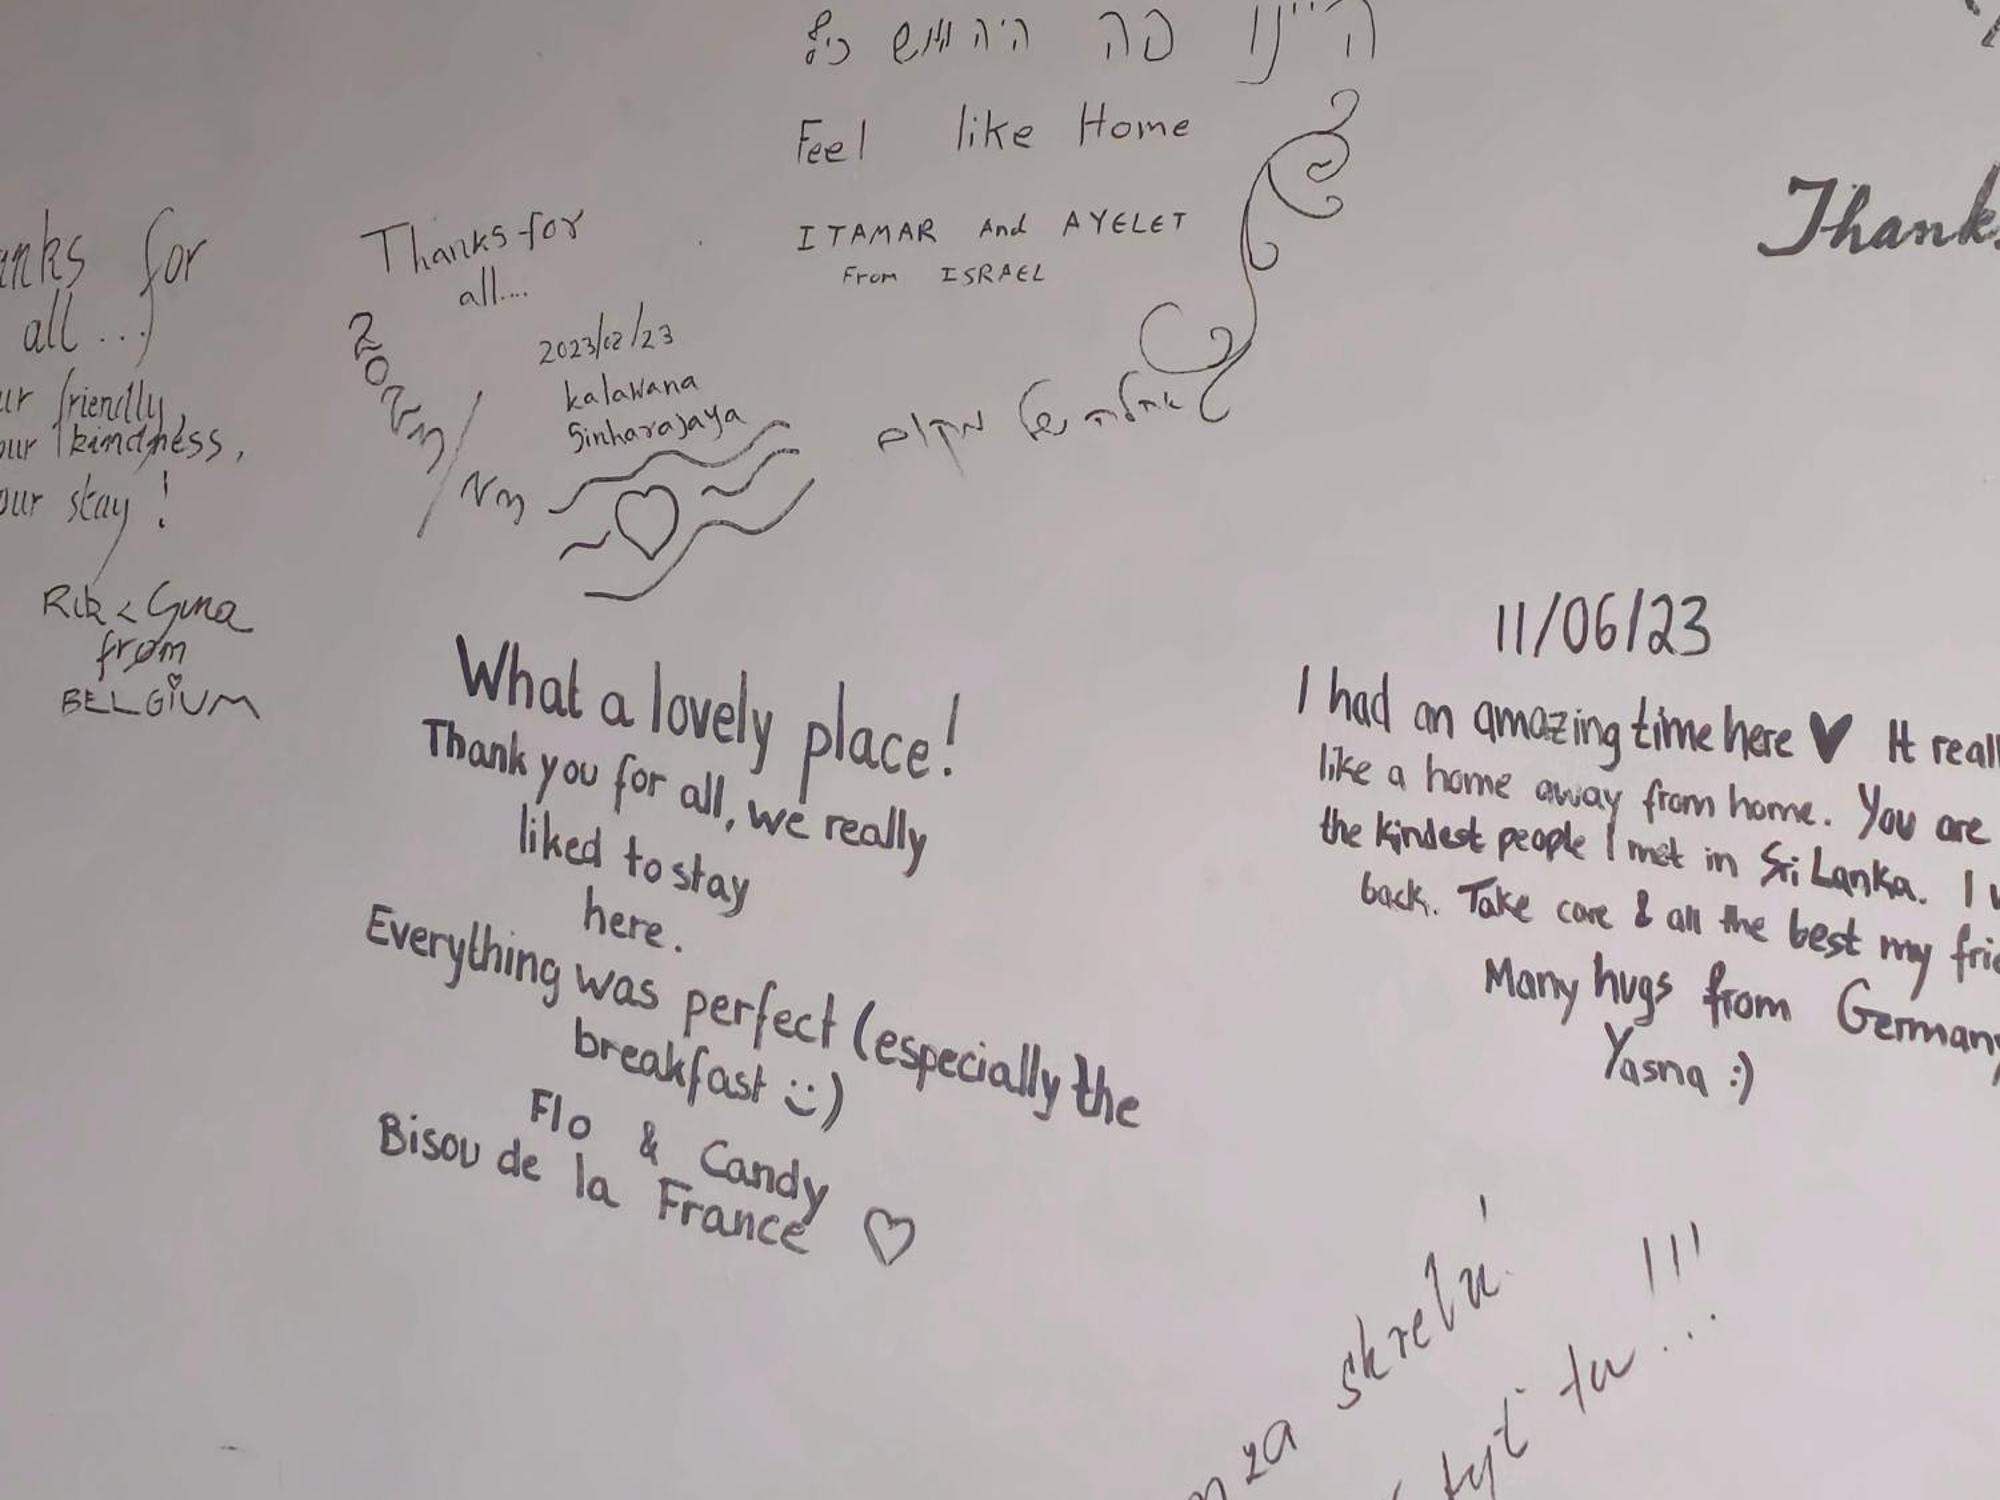 היינו פה היה ממש כיף
Feel like Home
ITAMAR And AYELET
From ISRAEL
אחלה של מקום
Thanks
nks for
all...
ur friendly,
our kindness,
our stay!
Rik & Gina
from
BELGIUM
Thanks for
all....
2023/02/23
kalawana
Sinharajaya
What a lovely place!
Thank you for all, we really
liked to stay
here.
Everything was perfect (especially the
breakfast :))
Flo & Candy
Bisou de la France ♡
11/06/23
I had an amazing time here ♥ It reall
like a home away from home. You are
the kindest people I met in Sri Lanka. I
back. Take care & all the best my frie
Many hugs from Germany
Yasna :)
za skvelú
byť tu...!!!